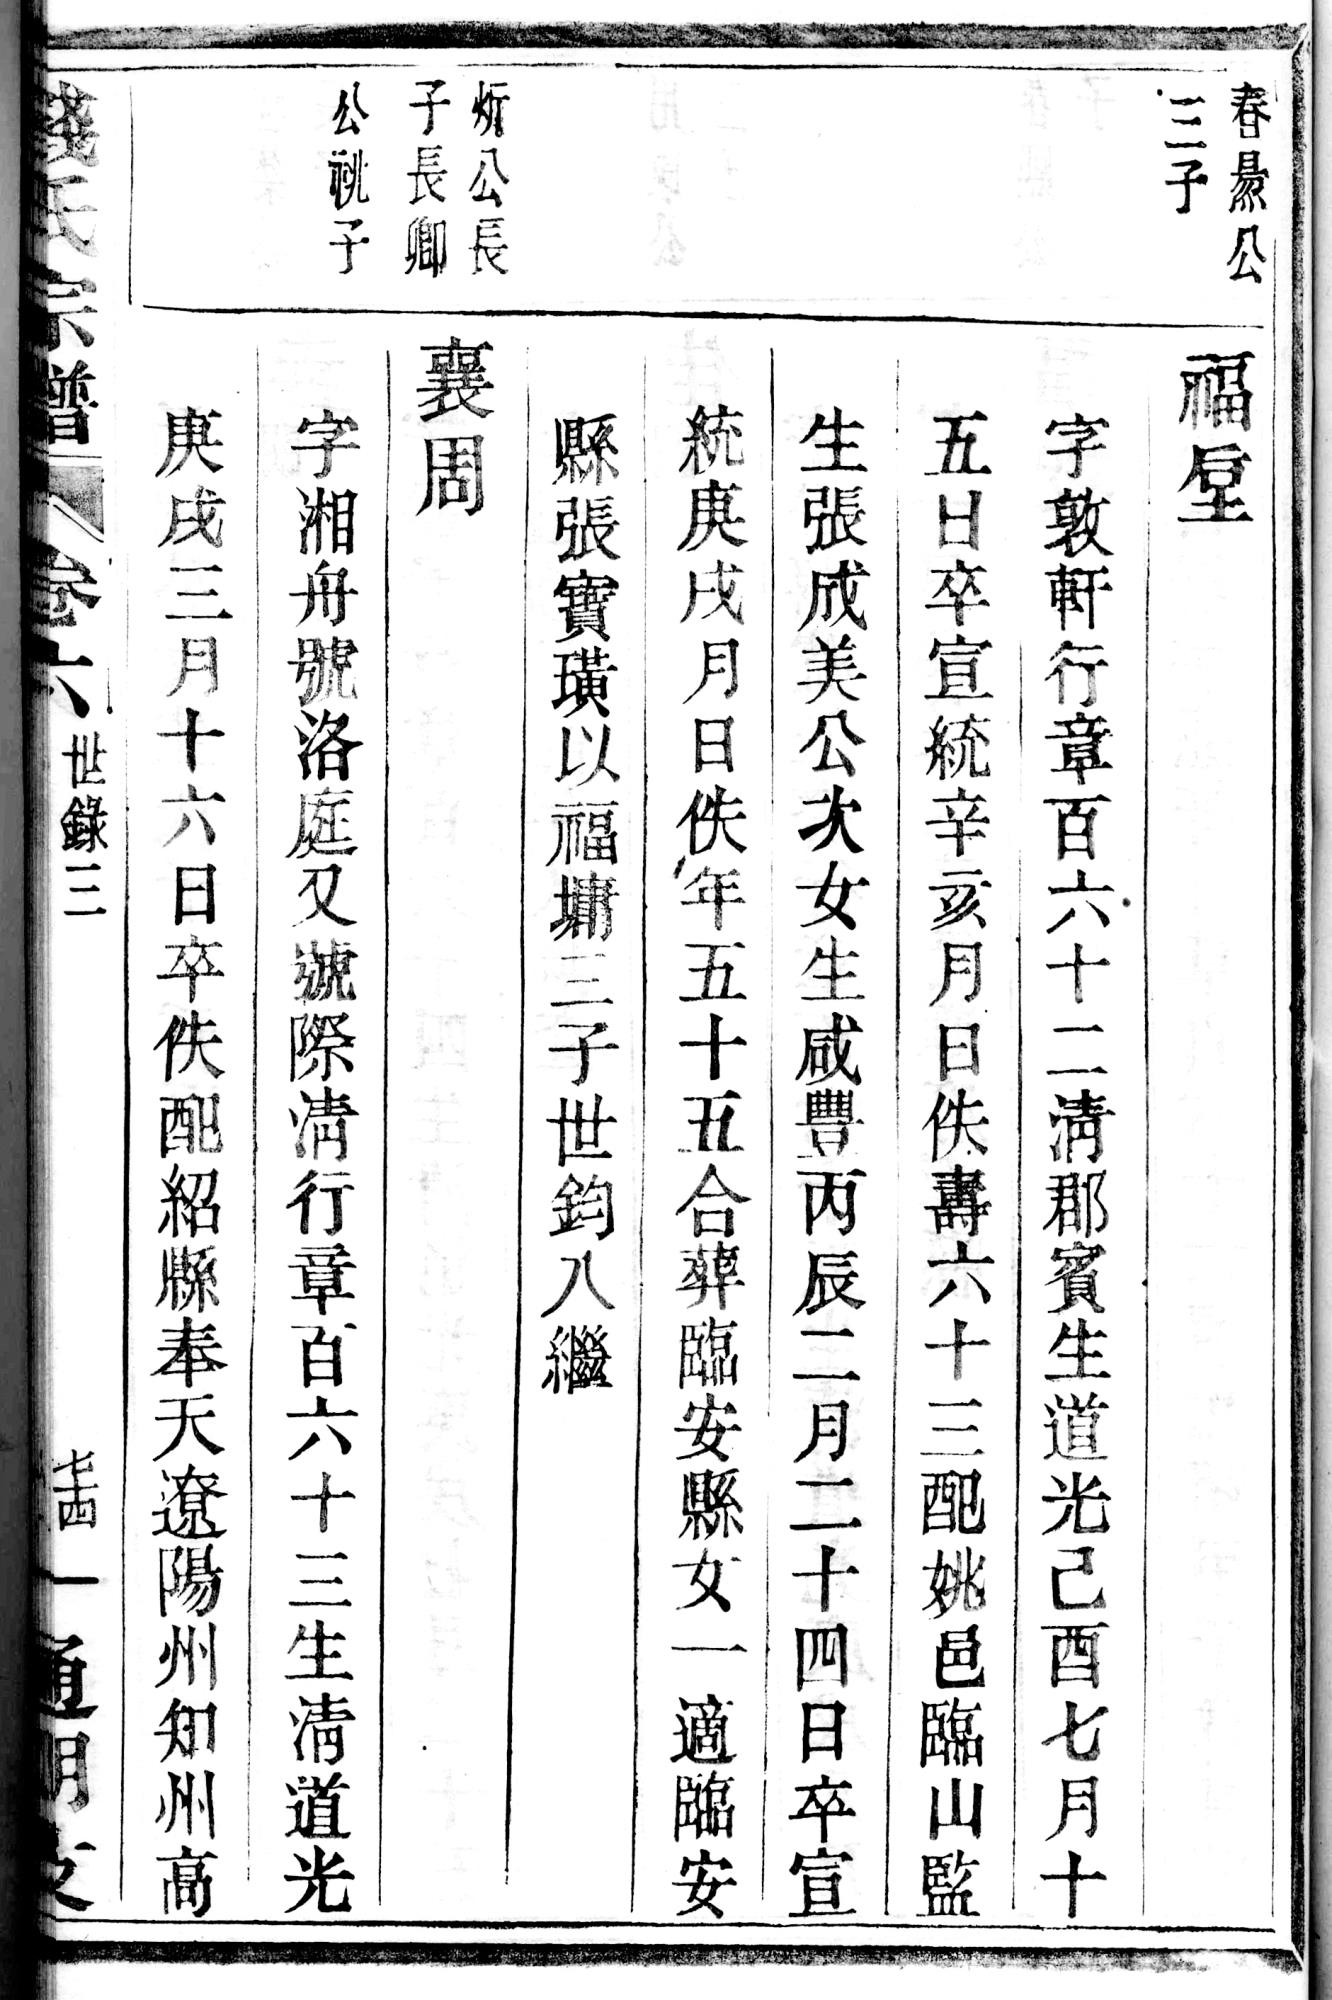 春景公
三子
福堂
字敦軒行章百六十二淸郡賓生道光己酉七月十
五日卒宣統辛亥月日佚壽六十三配姚邑臨山監
生張成美公次女生咸豐丙辰二月二十四日卒宣
統庚戌月日佚年五十五合葬臨安縣女一適臨安
縣張寶璜以福墉三子世鈞入繼
炘公長
子長卿
公祧子
襄周
字湘舟號洛庭又號際淸行章百六十三生淸道光
庚戌三月十六日卒佚配紹縣奉天遼陽州知州高
錢氏宗譜 卷六 世錄三 七十四 一 通明支